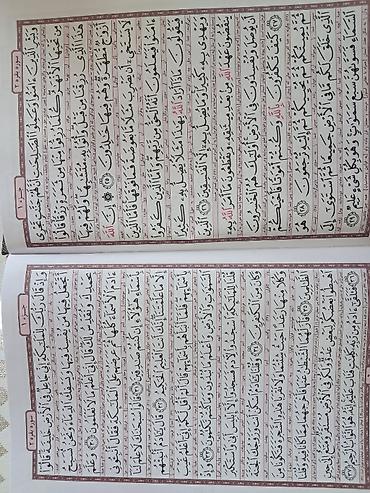 سورة بقره ٢
جزء ١
وَبَشِّرِ الَّذِينَ آمَنُوا وَعَمِلُوا الصَّالِحَاتِ أَنَّ لَهُمْ جَنَّاتٍ تَجْرِي
مِن تَحْتِهَا الْأَنْهَارُ كُلَّمَا رُزِقُوا مِنْهَا مِن ثَمَرَةٍ رِّزْقًا قَالُوا
هَٰذَا الَّذِي رُزِقْنَا مِن قَبْلُ وَأُتُوا بِهِ مُتَشَابِهًا وَلَهُمْ فِيهَا
أَزْوَاجٌ مُّطَهَّرَةٌ وَهُمْ فِيهَا خَالِدُونَ ﴿٢٥﴾ إِنَّ اللَّهَ
لَا يَسْتَحْيِي أَن يَضْرِبَ مَثَلًا مَّا بَعُوضَةً فَمَا فَوْقَهَا فَأَمَّا الَّذِينَ
آمَنُوا فَيَعْلَمُونَ أَنَّهُ الْحَقُّ مِن رَّبِّهِمْ وَأَمَّا الَّذِينَ كَفَرُوا
فَيَقُولُونَ مَاذَا أَرَادَ اللَّهُ بِهَٰذَا مَثَلًا يُضِلُّ بِهِ كَثِيرًا
وَيَهْدِي بِهِ كَثِيرًا وَمَا يُضِلُّ بِهِ إِلَّا الْفَاسِقِينَ ﴿٢٦﴾ الَّذِينَ
يَنقُضُونَ عَهْدَ اللَّهِ مِن بَعْدِ مِيثَاقِهِ وَيَقْطَعُونَ مَا أَمَرَ اللَّهُ بِهِ
أَن يُوصَلَ وَيُفْسِدُونَ فِي الْأَرْضِ أُولَٰئِكَ هُمُ الْخَاسِرُونَ
﴿٢٧﴾ كَيْفَ تَكْفُرُونَ بِاللَّهِ وَكُنتُمْ أَمْوَاتًا فَأَحْيَاكُمْ
ثُمَّ يُمِيتُكُمْ ثُمَّ يُحْيِيكُمْ ثُمَّ إِلَيْهِ تُرْجَعُونَ ﴿٢٨﴾ هُوَ
الَّذِي خَلَقَ لَكُم مَّا فِي الْأَرْضِ جَمِيعًا ثُمَّ اسْتَوَىٰ إِلَى
السَّمَاءِ فَسَوَّاهُنَّ سَبْعَ سَمَاوَاتٍ وَهُوَ بِكُلِّ شَيْءٍ عَلِيمٌ ﴿٢٩﴾
جزء ١
سورة بقره ٢
وَإِذْ قَالَ رَبُّكَ لِلْمَلَائِكَةِ إِنِّي جَاعِلٌ فِي الْأَرْضِ خَلِيفَةً قَالُوا
أَتَجْعَلُ فِيهَا مَن يُفْسِدُ فِيهَا وَيَسْفِكُ الدِّمَاءَ وَنَحْنُ نُسَبِّحُ
بِحَمْدِكَ وَنُقَدِّسُ لَكَ قَالَ إِنِّي أَعْلَمُ مَا لَا تَعْلَمُونَ ﴿٣٠﴾ وَعَلَّمَ
آدَمَ الْأَسْمَاءَ كُلَّهَا ثُمَّ عَرَضَهُمْ عَلَى الْمَلَائِكَةِ فَقَالَ أَنبِئُونِي
بِأَسْمَاءِ هَٰؤُلَاءِ إِن كُنتُمْ صَادِقِينَ ﴿٣١﴾ قَالُوا سُبْحَانَكَ لَا عِلْمَ لَنَا
إِلَّا مَا عَلَّمْتَنَا إِنَّكَ أَنتَ الْعَلِيمُ الْحَكِيمُ ﴿٣٢﴾ قَالَ يَا آدَمُ أَنبِئْهُم
بِأَسْمَائِهِمْ فَلَمَّا أَنبَأَهُم بِأَسْمَائِهِمْ قَالَ أَلَمْ أَقُل لَّكُمْ إِنِّي أَعْلَمُ غَيْبَ
السَّمَاوَاتِ وَالْأَرْضِ وَأَعْلَمُ مَا تُبْدُونَ وَمَا كُنتُمْ تَكْتُمُونَ ﴿٣٣﴾ وَإِذْ
قُلْنَا لِلْمَلَائِكَةِ اسْجُدُوا لِآدَمَ فَسَجَدُوا إِلَّا إِبْلِيسَ أَبَىٰ وَاسْتَكْبَرَ
وَكَانَ مِنَ الْكَافِرِينَ ﴿٣٤﴾ وَقُلْنَا يَا آدَمُ اسْكُنْ أَنتَ وَزَوْجُكَ الْجَنَّةَ
وَكُلَا مِنْهَا رَغَدًا حَيْثُ شِئْتُمَا وَلَا تَقْرَبَا هَٰذِهِ الشَّجَرَةَ فَتَكُونَا مِنَ
الظَّالِمِينَ ﴿٣٥﴾ فَأَزَلَّهُمَا الشَّيْطَانُ عَنْهَا فَأَخْرَجَهُمَا مِمَّا كَانَا فِيهِ وَقُلْنَا
اهْبِطُوا بَعْضُكُمْ لِبَعْضٍ عَدُوٌّ وَلَكُمْ فِي الْأَرْضِ مُسْتَقَرٌّ وَمَتَاعٌ إِلَىٰ حِينٍ
﴿٣٦﴾ فَتَلَقَّىٰ آدَمُ مِن رَّبِّهِ كَلِمَاتٍ فَتَابَ عَلَيْهِ إِنَّهُ هُوَ التَّوَّابُ الرَّحِيمُ ﴿٣٧﴾